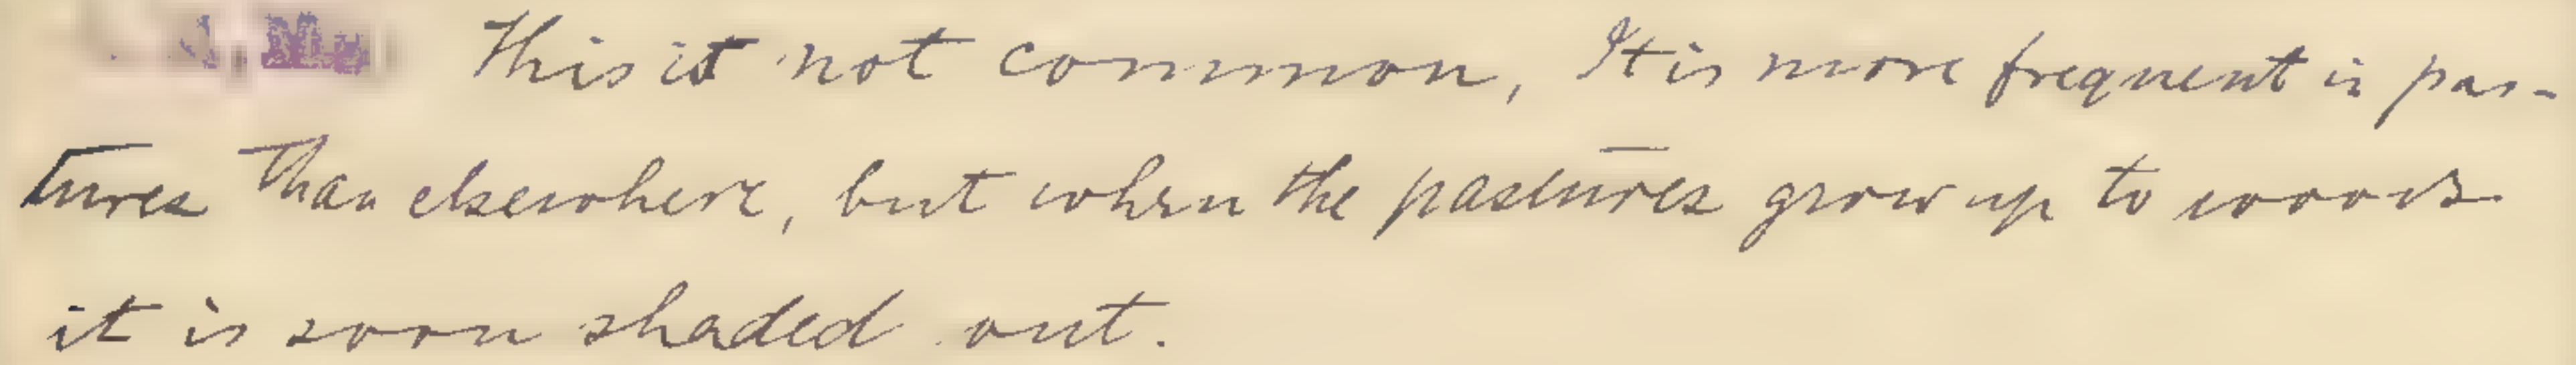 This is not common, It is more frequent in pas-
tures than elsewhere, but when the pastures grow up to woods
it is soon shaded out.